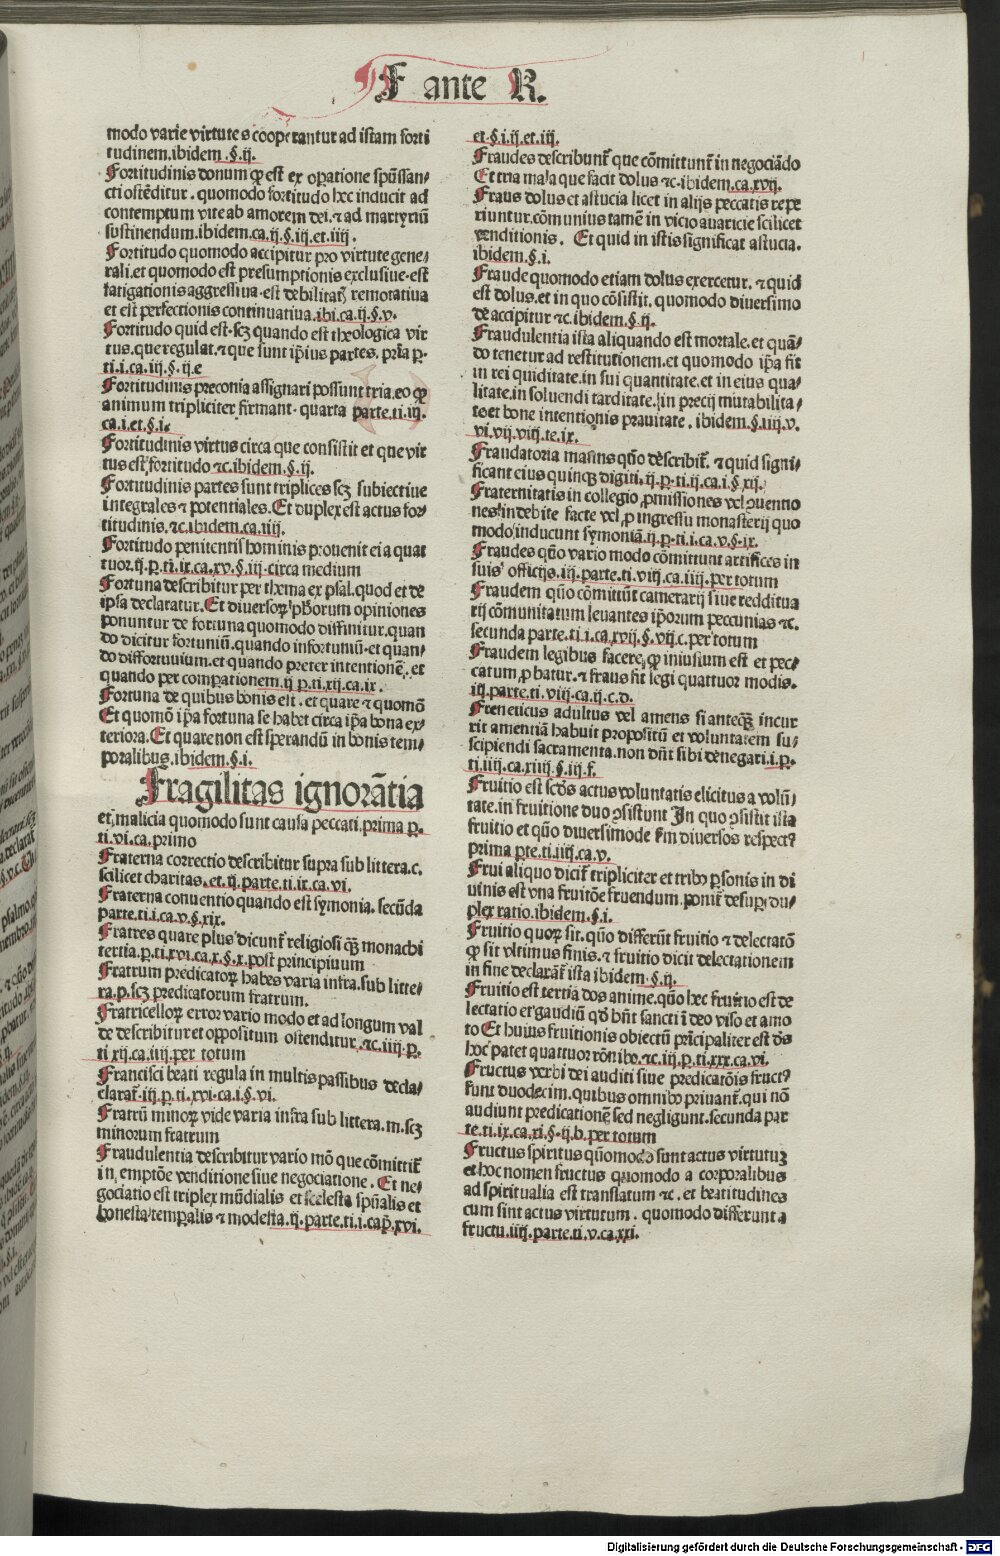 F ante R.
modo varie virtutes cooperantur ad istam forti
tudinem.ibidem.§.ij.
Fortitudinis donum ꝙ est ex oꝑatione spūssan⸗
cti ostēditur. quomodo fortitudo hec inducit ad
contemptum vite ab amorem dei. ⁊ ad martyriū
sustinendum.ibidem.ca.ij.§.iij.et.iiij.
Fortitudo quomodo accipitur pro virtute gene⸗
rali.et quomodo est presumptionis exclusiue.est
fatigationis aggressiua.est debilitatꝭ remoratiua
et est perfectionis continuatiua.ibi.ca.ij.§.v.
Fortitudo quid est.scꝫ quando est theologica vir
tus.que regulat.⁊ que sunt ip̄ius partes. pria p.
ti.i.ca.iij.§.ij.e
Fortitudinis preconia assignari possunt tria.eo ꝙ
animum tripliciter firmant. quarta parte.ti.iij.
ca.i.et.§.i.
Fortitudinis virtus circa que consistit et que vir
tus est fortitudo ⁊c.ibidem.§.ij.
Fortitudinis partes sunt triplices scꝫ subiectiue
integrales ⁊ potentiales. Et duplex est actus for⸗
titudinis.⁊c.ibidem.ca.iiij.
Fortitudo penitentis hominis prouenit ei a quat
tuor.ij.p.ti.ix.ca.xv.§.iij circa medium
Fortuna describitur per thema ex psal.quod et de
ipsa declaratur. Et diuersoꝝ phorum opiniones
ponuntur de fortuna quomodo diffinitur.quan
do dicitur fortuniū.quando infortuniū.et quan⸗
do diffortuuium.et quando preter intentionē.et
quando per comparationem.ij p.ti.xij.ca.ix.
Fortuna de quibus bonis est. et quare ⁊ quomō
Et quomō ip̄a fortuna se habet circa ip̄a bona ex⸗
teriora.Et quare non est sperandū in bonis tem⸗
poralibus.ibidem.§.i.
Fragilitas ignorātia
et malicia quomodo sunt causa peccati.prima p.
ti.vi.ca.primo
Fraterna correctio describitur supra sub littera.c.
scilicet charitas.et.ij.parte.ti.ix.ca.vi.
Fraterna conuentio quando est symonia. secūda
parte.ti.i.ca.v.§.xix.
Fratres quare plus dicunt̄ religiosi qꝫ monachi
tertia.p.ti.xvi.ca.x.§.x.post principiuum
Fratrum predicatoꝝ habes varia infra.sub litte⸗
ra.p.scꝫ predicatorum fratrum.
Fratricelloꝝ error vario modo et ad longum val
de describitur et oppositum ostenditur.⁊c.iiij.p.
ti xij.ca.iiij.per totum
Francisci beati regula in multis passibus decla⸗
clarat̄.iij.p.ti.xvi.ca.i.§.vi.
Fratrū minoꝝ vide varia infra sub littera.m.scꝫ
minorum fratrum
Fraudulentia describitur vario mō que cōmittit̄
in emptōe venditione siue negociatione. Et ne⸗
gociatio est triplex mūdialis et scelesta spūalis et
honesta tempalis ⁊ modesta.ij.parte.ti.i.cap̄.xvi.
et.§.i.ij.et.iij.
Fraudes describunt̄ que cōmittunt̄ in negociādo
Et tria mala que facit dolus ⁊c.ibidem.ca.xvij.
Fraus dolus et astucia licet in alijs peccatis repe
riuntur.cōmunius tamē in vicio auaricie scilicet
venditionis. Et quid in istis significat astucia.
ibidem.§.i.
Fraude quomodo etiam dolus exercetur. ⁊ quid
est dolus.et in quo cōsistit. quomodo diuersimo
de accipitur ⁊c.ibidem.§.ij.
Fraudulentia ista aliquando est mortale.et quā⸗
do tenetur ad restitutionem.et quomodo ip̄a fit
in rei quiditate.in sui quantitate.et in eius qua⸗
litate.in soluendi tarditate.in precij mutabilita⸗
te.et bone intentionis prauitate. ibidem.§.iiij.v.
vi.vij.viij.te.ix.
Fraudatoria manus quō describit̄. ⁊ quid signi⸗
ficant eius quinqꝫ digiti.ij.p.ti.ij.ca.i.§.xij.
Fraternitatis in collegio ꝓmissiones vel ꝯuentio
nes indebite facte vel ꝓ ingressu monasterij quo
modo inducunt symoniā.ij.p.ti.i.ca.v.§.ix.
Fraudes quō vario modo cōmittunt artifices in
suis officijs.iij.parte.ti.viij.ca.iiij.per totum
Fraudem quō cōmittūt camerarij siue redditua
rij cōmunitatum leuantes ip̄orum peccunias ⁊c.
secunda parte.ti.i.ca.xvij.§.viij.c.per totum
Fraudem legibus facere ꝙ iniusium est et pec⸗
catum ꝓbatur.⁊ fraus fit legi quattuor modis.
iij.parte.ti.viij.ca.ij.c.d.
Freneticus adultus vel amens si anteqꝫ incur
rit amentiā habuit propositū et voluntatem su⸗
scipiendi sacramenta.non dn̄t sibi denegari.i.p.
ti.iiij.ca.xiiij.§.iij.f.
Fruitio est scd̄s actus voluntatis elicitus a volū⸗
tate.in fruitione duo ꝯsistunt In quo ꝯsistit ista
fruitio et quō diuersimode fm diuersos respect⁹
prima ꝑte.ti.iiij.ca.v.
Frui aliquo dicit̄ tripliciter et tribꝰ psonis in di
uinis est vna fruitōe fruendum.ponit̄ desuꝑ du⸗
plex ratio.ibidem.§.i.
Fruitio quoꝝ sit.quō differūt fruitio ⁊ delectatō
ꝙ sit vltimus finis.⁊ fruitio dicit delectationem
in fine declarat̄ ista ibidem.§.ij.
Fruitio est tertia dos anime.quō hec fruitio est de
lectatio et gaudiū qd̄ hn̄t sancti ī deo viso et ama
to Et huius fruitionis obiectū prīcipaliter est dēs
hoc patet quattuor rōnibꝰ.⁊c.iij.p.ti.xxx.ca.vi.
Fructus verbi dei auditi siue predicatōis fruct⁹
sunt duodecim.quibus omnibꝰ priuant̄.qui nō
audiunt predicationē sed negligunt.secunda par
te.ti.ix.ca.xi.§.ij.b.per totum
Fructus spiritus quōmodo sunt actus virtutuꝫ
et hoc nomen fructus quomodo a corporalibus
ad spiritualia est translatum ⁊c.et beatitudines
cum sint actus virtutum. quomodo differunt a
fructu.iiij.parte.ti.v.ca.xxi.
Digitalisierung gefördert durch die Deutsche Forschungsgemeinschaft - DFG